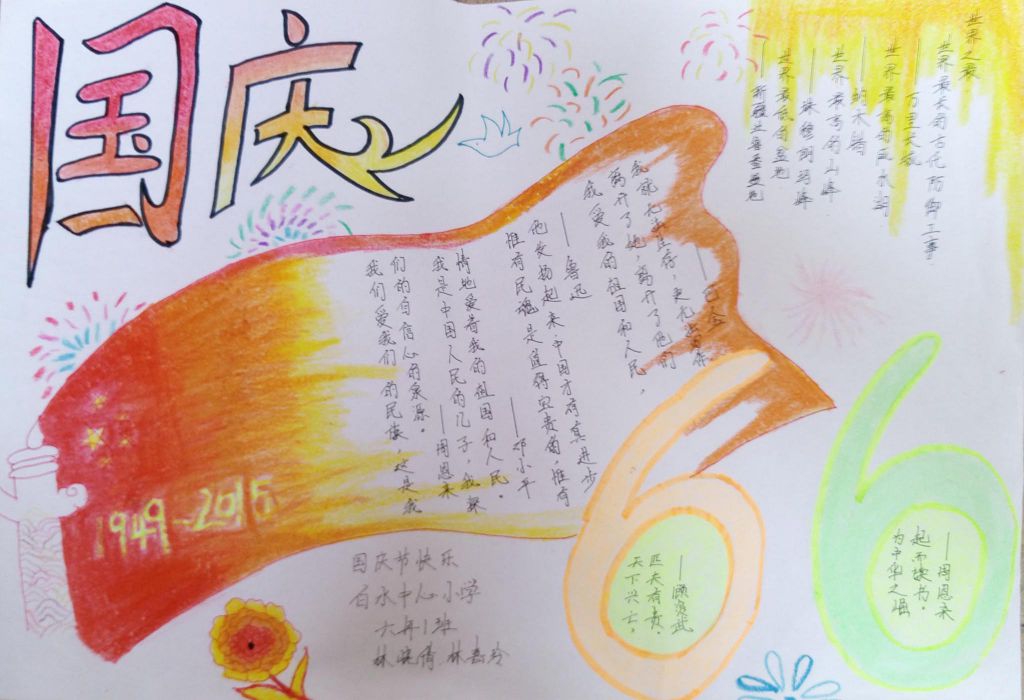 国庆
世界之最
世界最长的古代防御工事
——万里长城
世界最高的咸水湖
——纳木错
世界最高的山峰
——珠穆朗玛峰
世界最低的盆地
——新疆吐鲁番盆地
我们爱我们的民族，这是我
们的自信心的泉源。
——周恩来
我是中国人民的儿子，我深
情地爱着我的祖国和人民。
——邓小平
惟有民魂是值得宝贵的，惟有
他发扬起来，中国才有真进步
——鲁迅
我爱我的祖国和人民，
离开了她，离开了他们
我就无法生存，更无法写作
——巴金
1949-2015
66
天下兴亡，
匹夫有责。
——顾炎武
为中华之崛
起而读书。
——周恩来
国庆节快乐
白水中心小学
六年1班